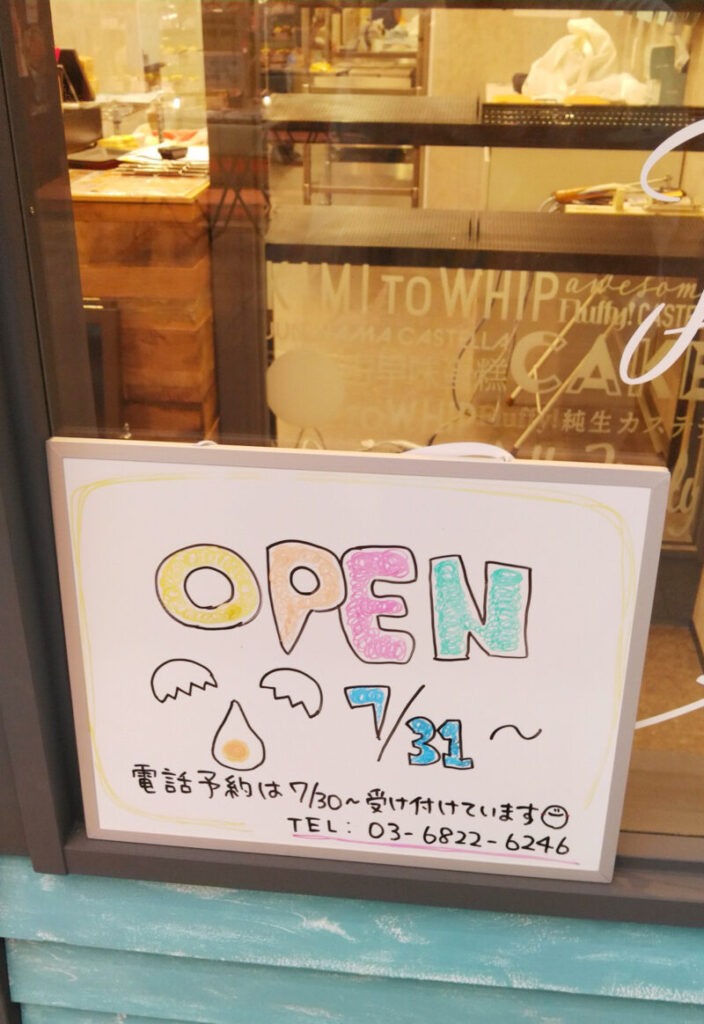 KIMI TO WHIP awesome
Fluffy! CASTE
CASTELLA
CAKE
WHIP Fluffy! 純生カステラ
OPEN
7/31~
電話予約は7/30~受け付けています
TEL: 03-6822-6246